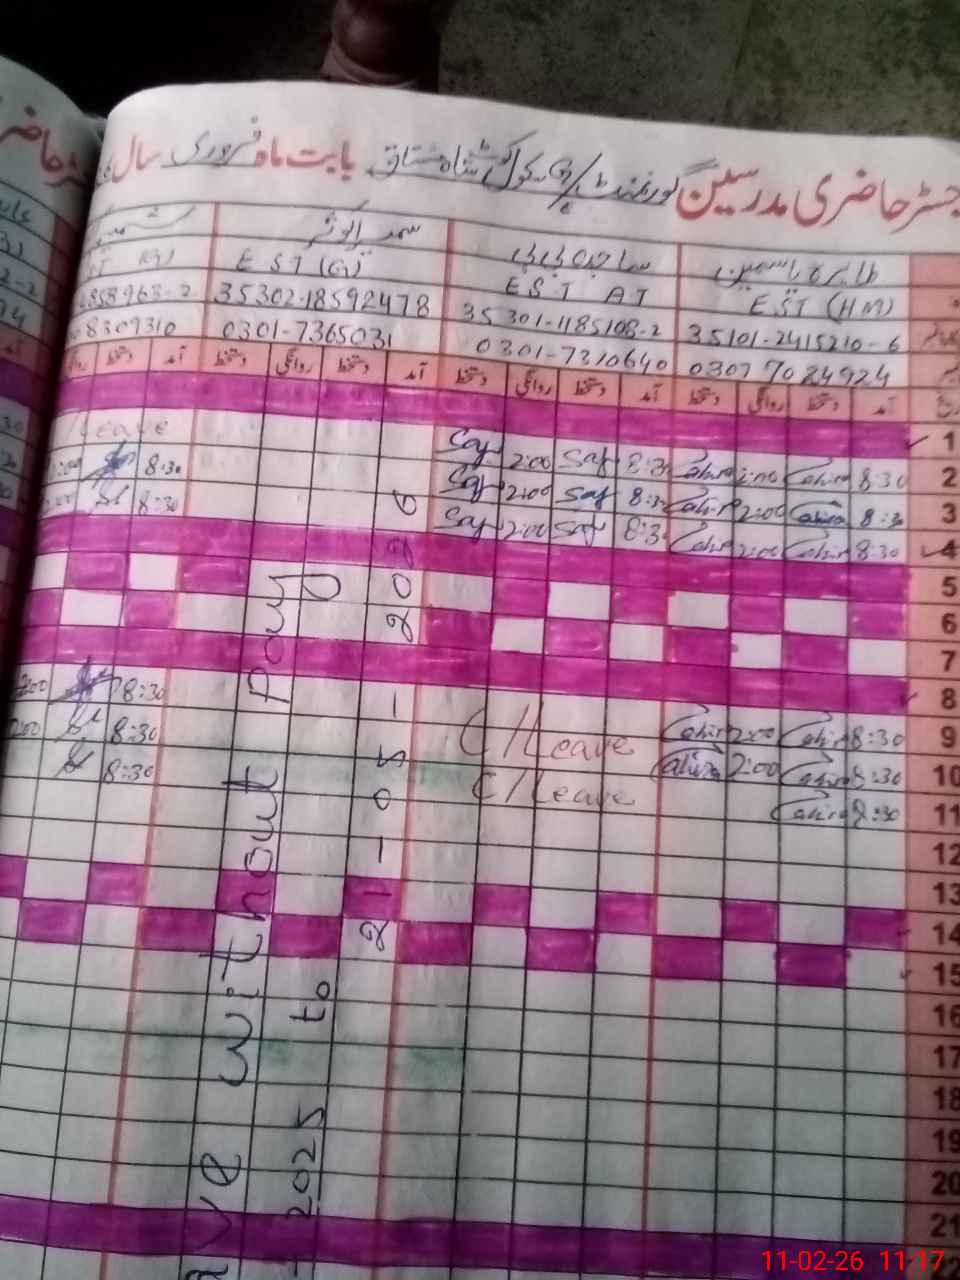 جسٹر حاضری مدرسین گورنمنٹ سکول کوٹ شاہ مشتاق بابت ماہ فروری سال
طاہرہ یاسمین ساجدہ بی بی سمیرا کوثر
EST (HM) EST AT EST (G)
35101-2415210-6 35301-1185108-2 35302-18592478 858963-2
0307 7024924 0301-7310640 0301-7365031 8309310
آمد دستخط روانگی دستخط آمد دستخط روانگی دستخط آمد دستخط روانگی دستخط آمد دستخط
1
2 8:30 Tahira 2:00 Tahira 8:30 Saj 2:00 Saj Leave
3 8:30 Tahira 2:00 Tahira 8:30 Saj 2:00 Saj 8:30
4 8:30 Tahira 2:00 Tahira 8:30 Saj 2:00 Saj 8:30
5
6
7
8
9 8:30 Tahira 2:00 Tahira C/Leave 8:30 2:00
10 8:30 Tahira 2:00 Tahira C/Leave 8:30 2:00
11 8:30 Tahira 8:30
12
13
14
15
16
17
18
19
20
21
ave without pay
2025 to 21-05-2026
11-02-26 11:17